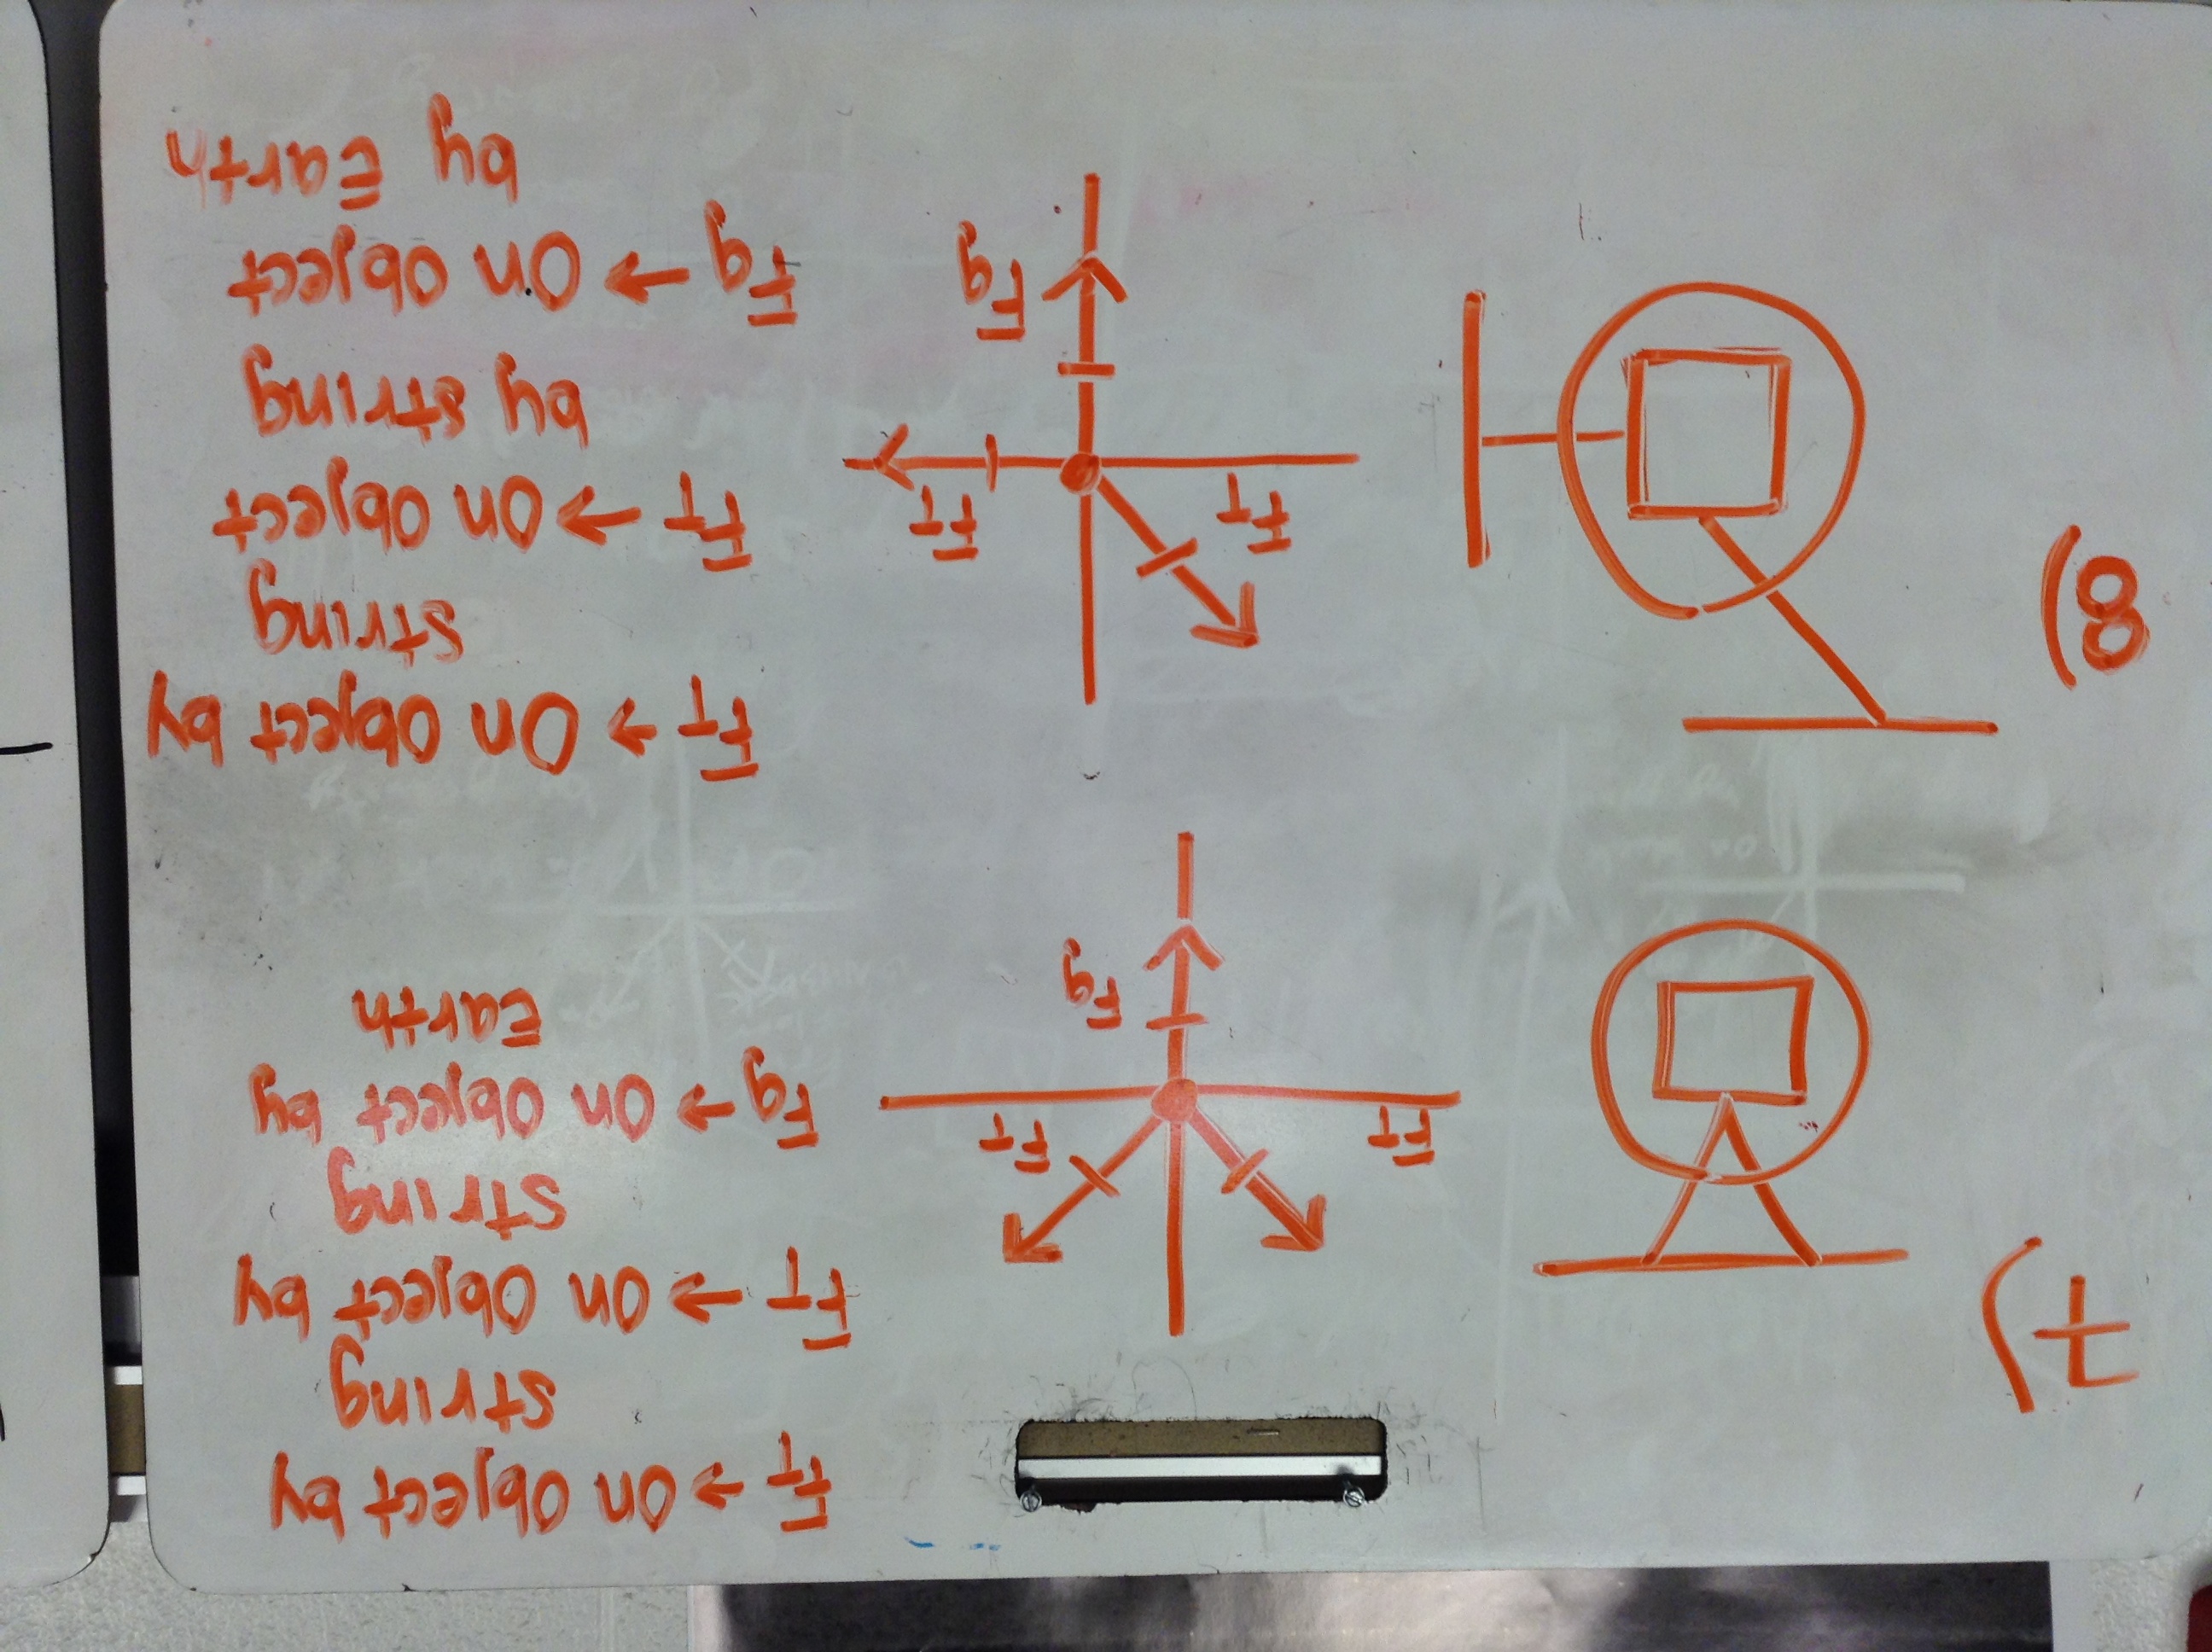 7)
FT
FT
Fg
FT → on object by
string
FT → on object by
string
Fg → on object by
Earth
8)
FT
FT
Fg
FT → on object by
string
FT → on object
by string
Fg → on object
by Earth